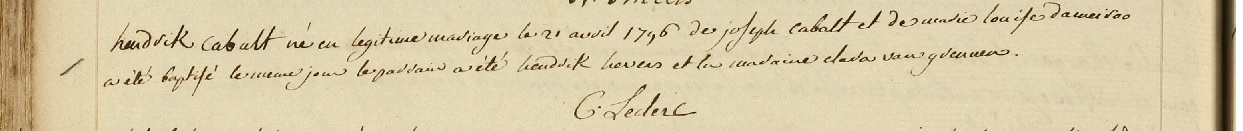 hendrik Cabalt né en legitime mariage le 21 avril 1796 de joseph Cabalt et de marie louise
a été baptisé le meme jour le parrain a été hendrik hevers et la maraine clara van
C. Leclerc